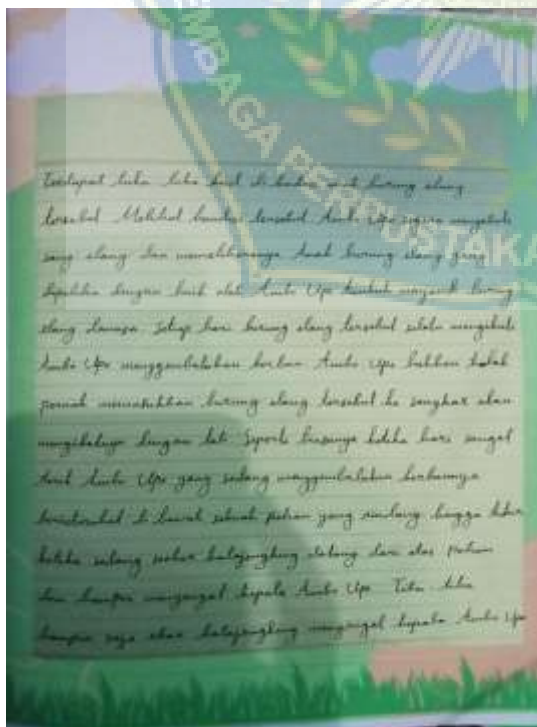 EMBAGA PERPUSTAKA
Terdapat luka luka kecil di badan anak burung elang
tersebut. Melihat kondisi tersebut Ambo Upe segera mengobati
sang elang dan memeliharanya. Anak burung elang yang
dipelihara dengan baik oleh Ambo Upe tumbuh menjadi burung
elang dewasa. Setiap hari burung elang tersebut selalu mengikuti
Ambo Upe menggembalakan kerbau. Ambo Upe bahkan tidak
pernah memasukkan burung elang tersebut ke sangkar atau
mengikatnya dengan tali. Seperti biasanya ketika hari sangat
terik Ambo Upe yang sedang menggembalakan kerbaunya
beristirahat di bawah sebuah pohon yang rindang hingga
ketika seekor kalajengking datang dari atas pohon
dan hampir menyengat kepala Ambo Upe. Tiba tiba
hampir saja ekor kalajengking menyengat kepala Ambo Upe